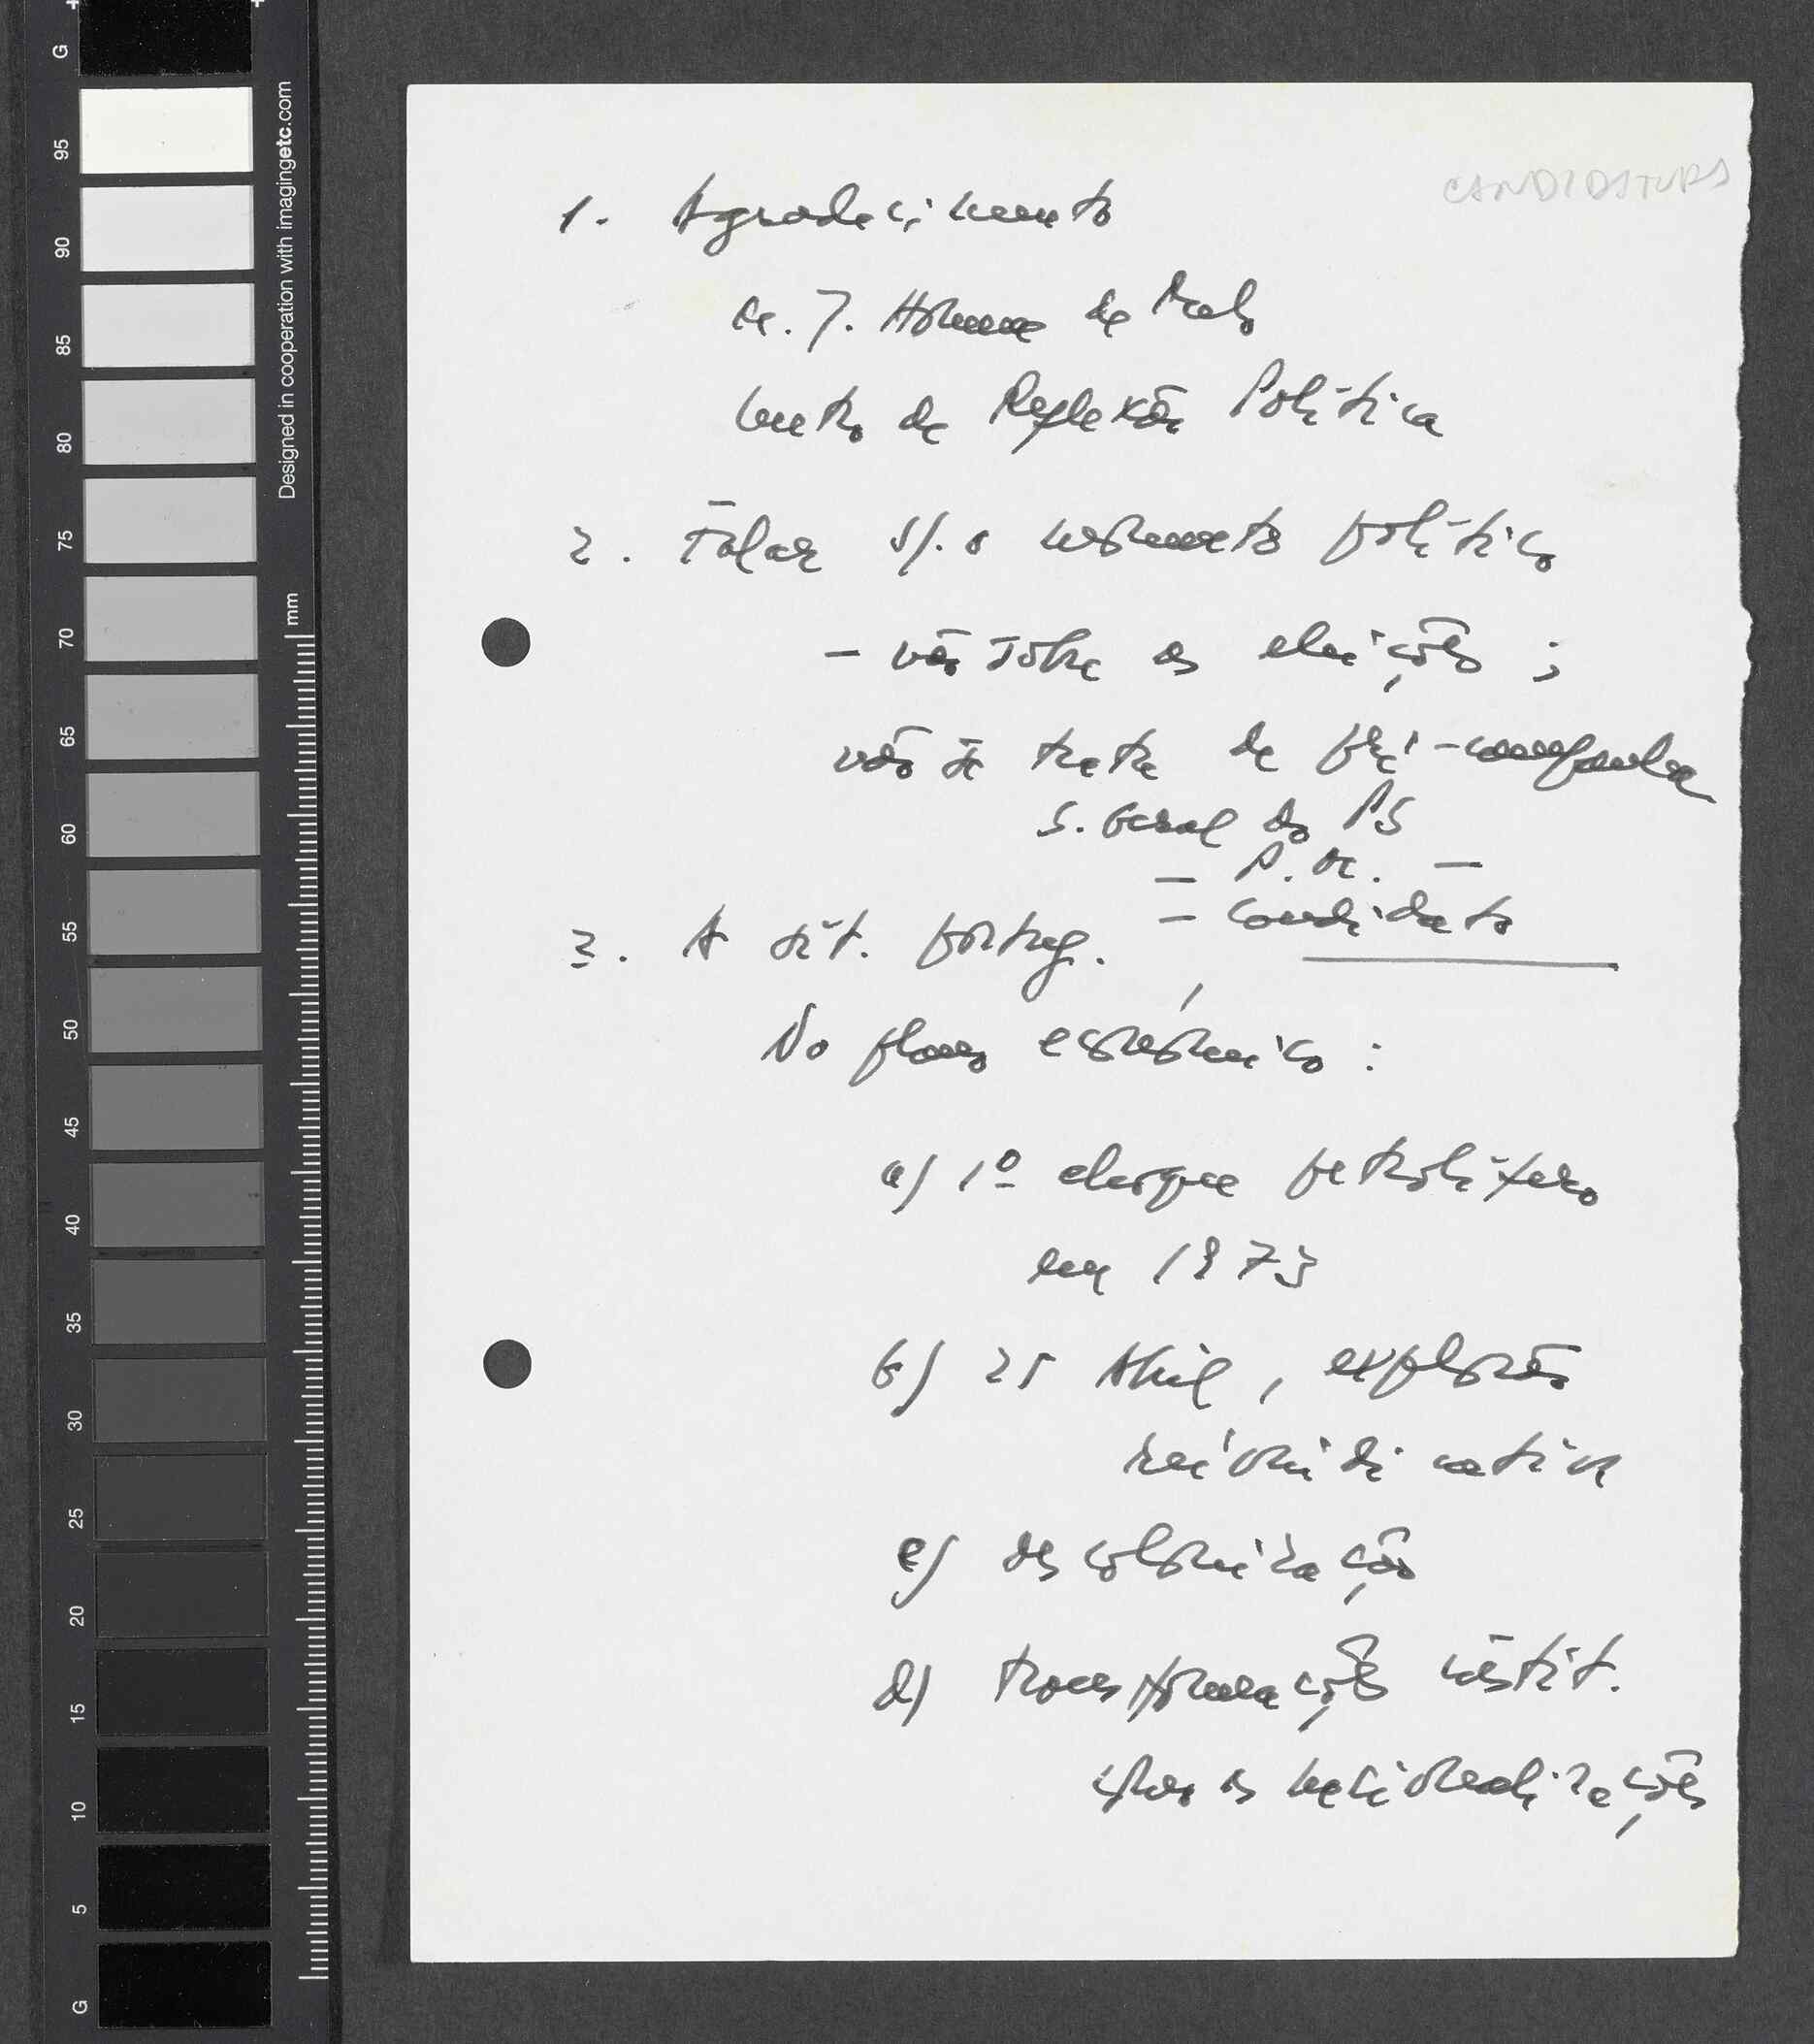 CANDIDATURA
1. Agradecimento
M. J. Homem de Melo
Centro de Reflexão Política
2. Falar s/. o momento político
- não sobre as eleições ;
não se trata de pré-campanha
S. Geral do PS
- P. M. -
- Candidato
3. A sit. portug.
No plano económico :
a) 1º choque petrolífero
em 1973
b) 25 Abril, explosão
reivindicativa
c) descolonização
d) transformações instit.
com as nacionalizações
G
95
90
85
80
75
70
65
60
55
50
45
40
35
30
25
20
15
10
5
G
Designed in cooperation with imagingetc.com
mm